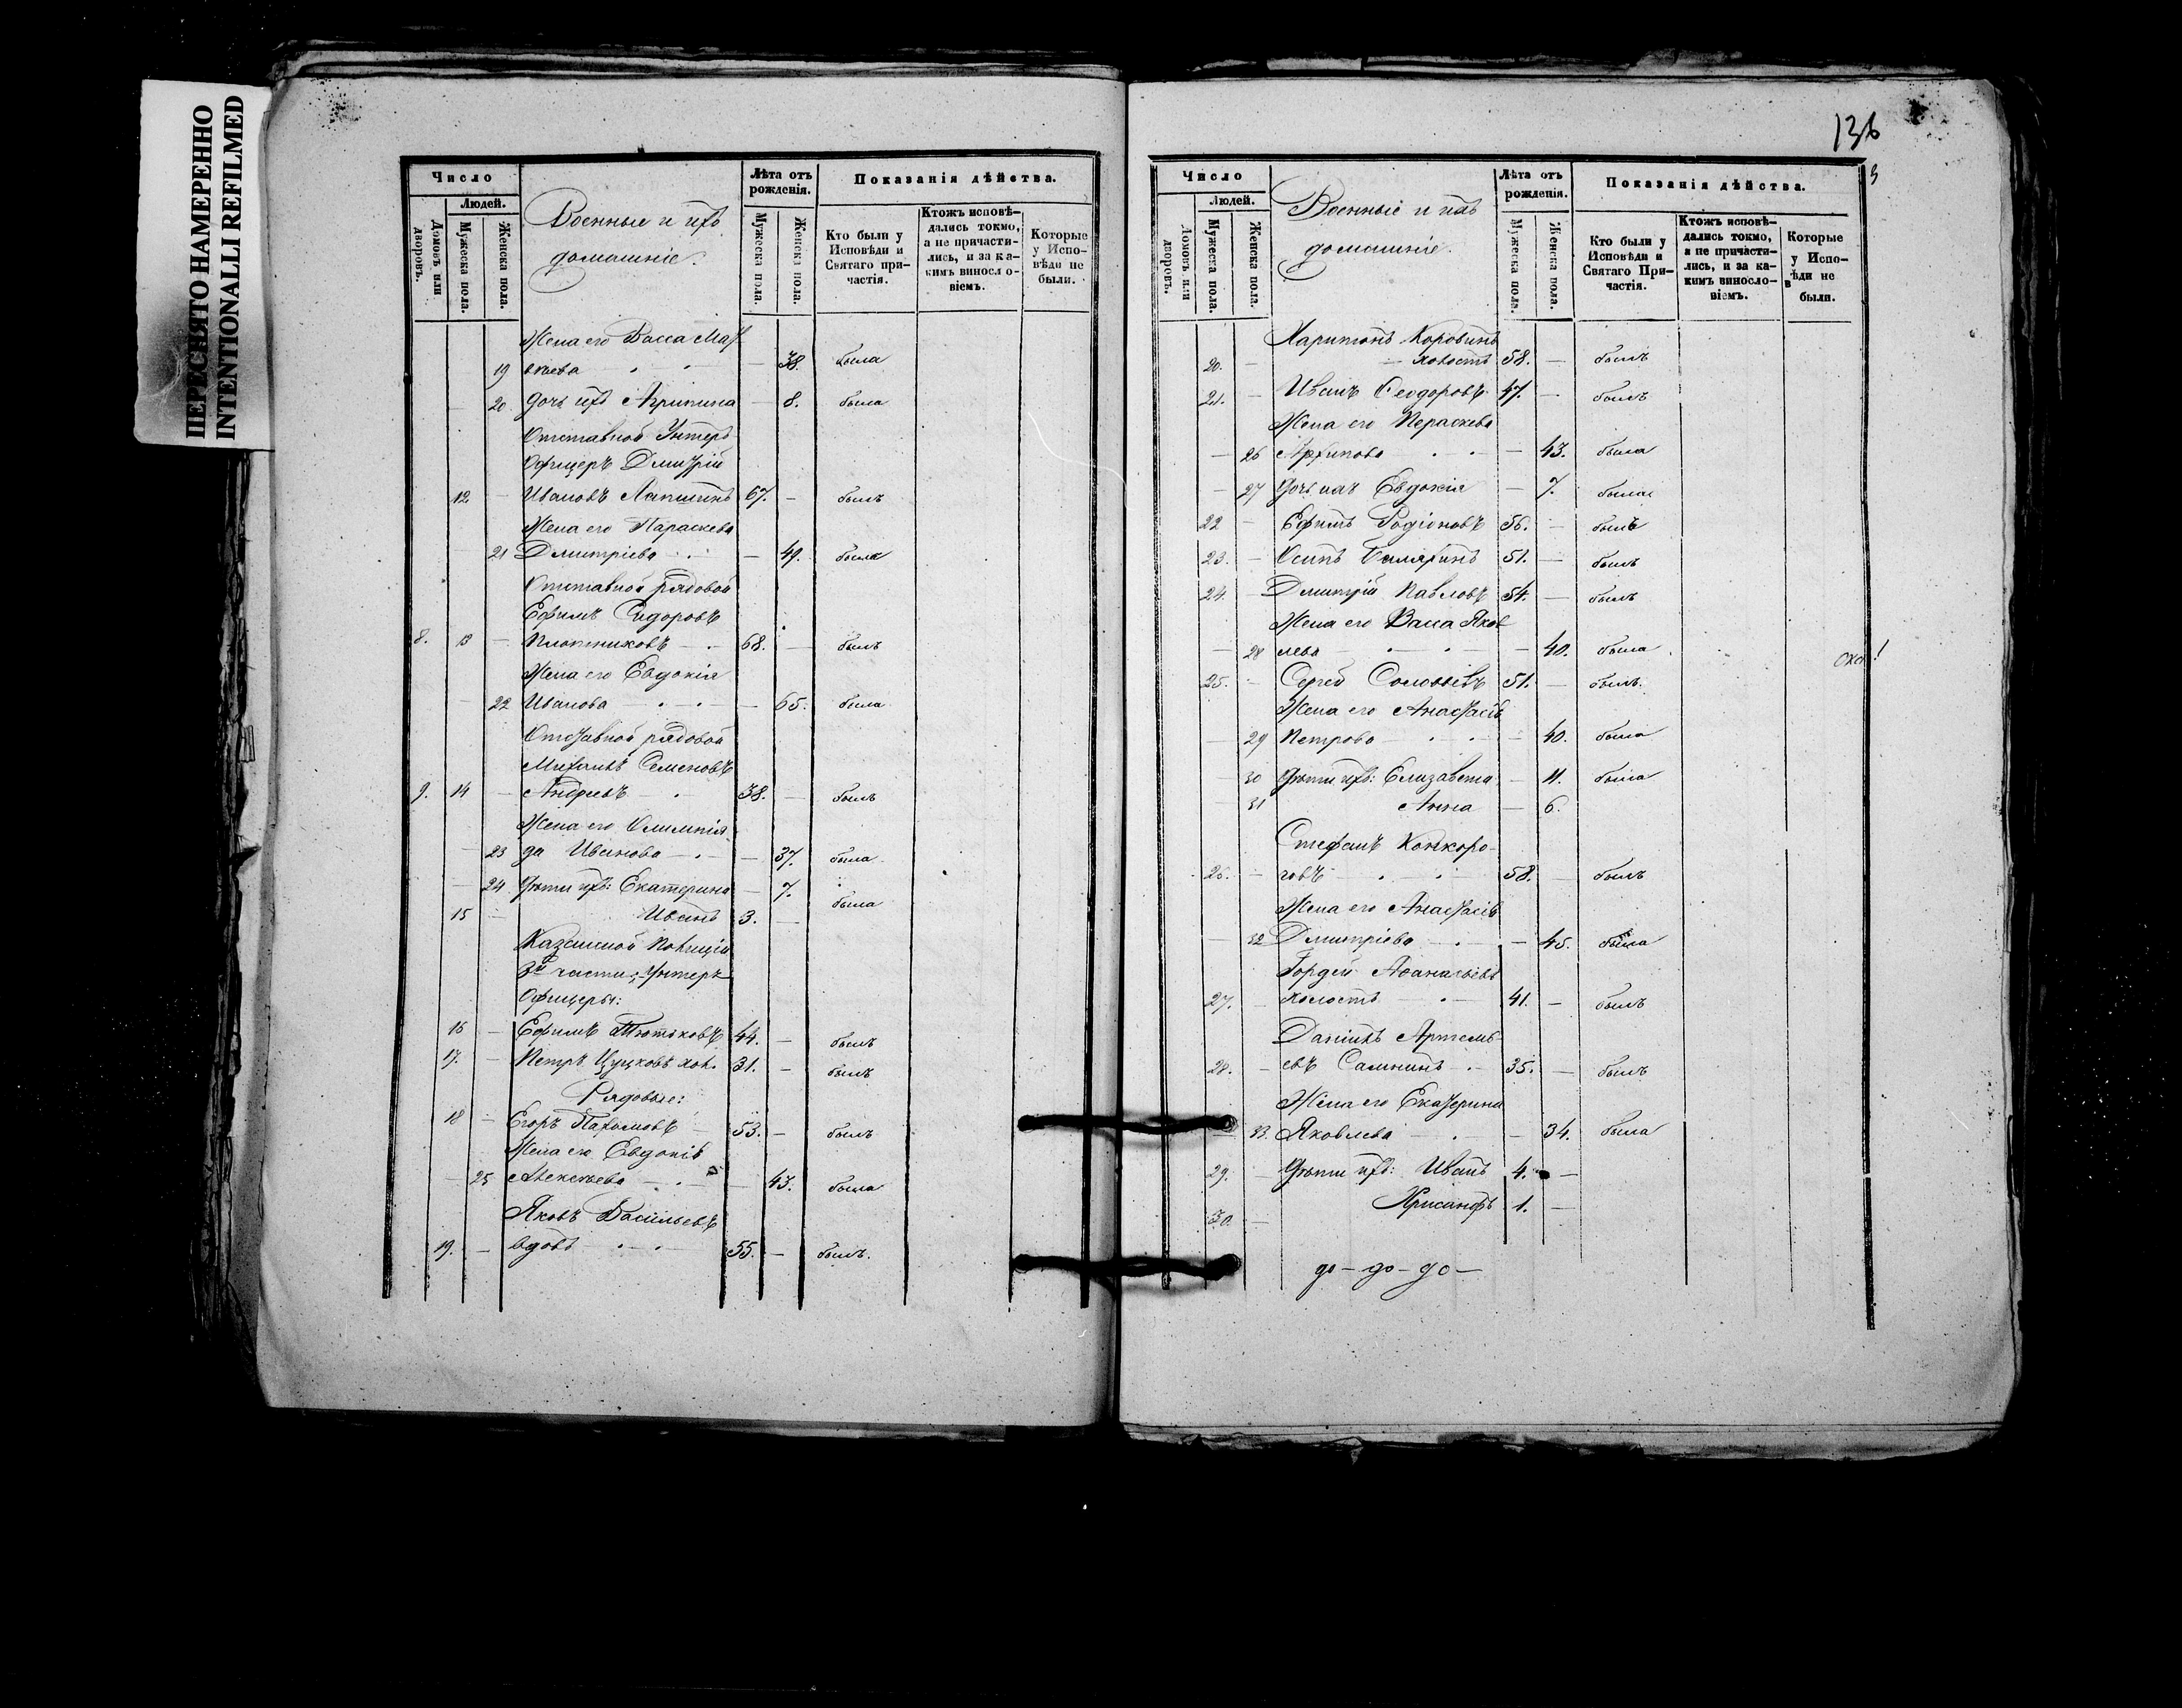 ПЕРЕСНЯТО НАМЕРЕННО
INTENTIONALLI REFILMED
Число
Людей.
Домовъ или дворовъ.
Мужеска пола.
Женска пола.
Военные и ихъ
домашніе.
Лѣта отъ рожденія.
Мужеска пола.
Женска пола.
Показанія дѣйства.
Кто были у Исповѣди и Святаго причастія.
Ктожъ исповѣдались токмо, а не причастились, и за какимъ винословіемъ.
Которые у Исповѣди не были.
Жена его Васса Мат
19 вѣева — 38. была
20 Дочь ихъ Агрипина — 8. была
Отставной Унтеръ
Офицеръ Дмитрій
12 — Ивановъ Лапшинъ 67. — былъ
Жена его Параскева
21 Дмитріева — 49. была
Отставной рядовой
Ефимъ Сидоровъ
8. 13 — Плотниковъ — 68. — былъ
Жена его Евдокія
22 Иванова — 65. была
Отставной рядовой
Михаилъ Семеновъ
9. 14 — Андреевъ — 38. — былъ
Жена его Олимпія
23 да Иванова — 37. была
24 Дѣти ихъ: Екатерина — 7. была
15 — Иванъ 3. —
Казанской Полиціи
3й части: Унтеръ
Офицеры:
16 — Ефимъ Тютиковъ 44. — былъ
17. — Петръ хол. 31. — былъ
Рядовые:
18 — Егоръ Пахомовъ 53. — былъ
Жена его Евдокія
25 Алексѣева — 43. была
Яковъ Васильевъ
19. — вдовъ — 55. — былъ.
136
Число
Людей.
Домовъ или дворовъ.
Мужеска пола.
Женска пола.
Военные и ихъ
домашніе.
Лѣта отъ рожденія.
Мужеска пола.
Женска пола.
Показанія дѣйства.
Кто были у Исповѣди и Святаго Причастія.
Ктожъ исповѣдались токмо, а не причастились, и за какимъ винословіемъ.
Которые у Исповѣди не были.
Харитонъ Коровинъ
20. — холостъ 58. — былъ
21. — Иванъ Ѳеодоровъ 47. — былъ
Жена его Пераскева
— 26 Архипова — 43. была
— 27 Дочь ихъ Евдокія — 7. была
22 — Ефимъ Родіоновъ 56. — былъ
23. — Осипъ 51. — былъ
24. — Дмитрій Павловъ 54. — былъ
Жена его Васса Яков
— 28 лева — 40. была
25. — Сергей Соловьевъ 51. — былъ.
Жена его Анастасія
— 29 Петрова — 40. была
— 30 Дѣти ихъ: Елизавета — 11. была
— 31 Анна — 6.
Стефанъ Конкоро-
26. — говъ — 58. — былъ
Жена его Анастасія
— 32 Дмитріева — 45. была
Гордей Аѳанасьевъ
27. — холостъ — 41. — былъ
Даніилъ Артемь-
28. — евъ Салминъ — 35. — былъ
Жена его Екатерина
— 33. Яковлева — 34. была
29. — Дѣти ихъ: Иванъ 4. —
30. — Хрисанфъ 1. —
до – до – до –